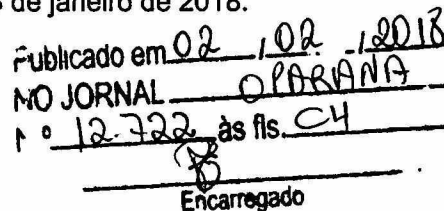 de janeiro de 2018.
Publicado em 02 / 02 / 2018
NO JORNAL O PARANÁ
Nº 12.722 às fls. C4
Encarregado